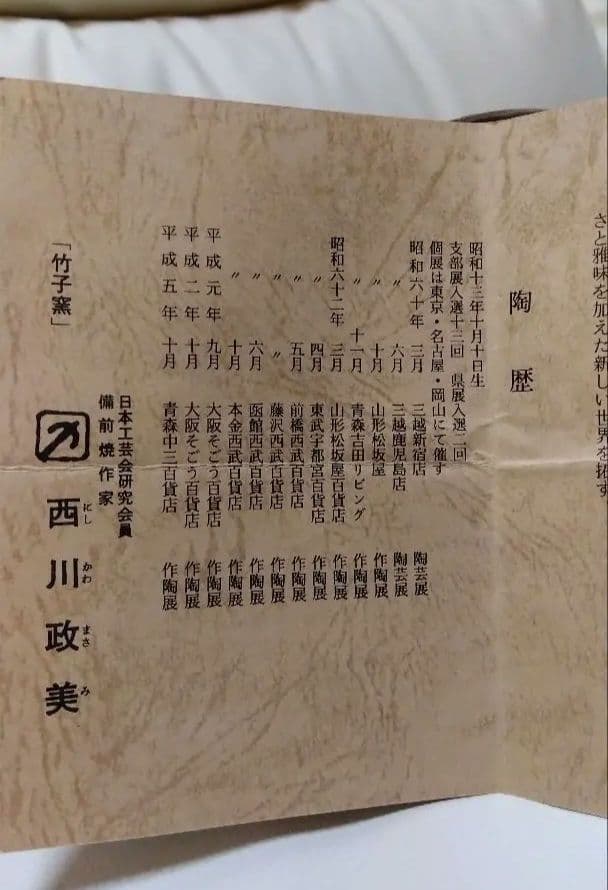 さと雅味を加えた新しい世界を拓す
陶歴
昭和十三年十月十日生
支部展入選十三回 県展入選二回
個展は東京・名古屋・岡山にて催す
昭和六十年 三月 三越新宿店 陶芸展
〃 六月 三越鹿児島店 陶芸展
〃 十月 山形松坂屋 作陶展
〃 十一月 青森吉田リビング 作陶展
昭和六十二年 三月 山形松坂屋百貨店 作陶展
〃 四月 東武宇都宮百貨店 作陶展
〃 五月 前橋西武百貨店 作陶展
〃 〃 藤沢西武百貨店 作陶展
〃 六月 函館西武百貨店 作陶展
〃 十月 本金西武百貨店 作陶展
平成元年 九月 大阪そごう百貨店 作陶展
平成二年 十月 大阪そごう百貨店 作陶展
平成五年 十月 青森中三百貨店 作陶展
日本工芸会研究会員
備前焼作家
「竹子窯」 西川政美
にし かわ まさ み